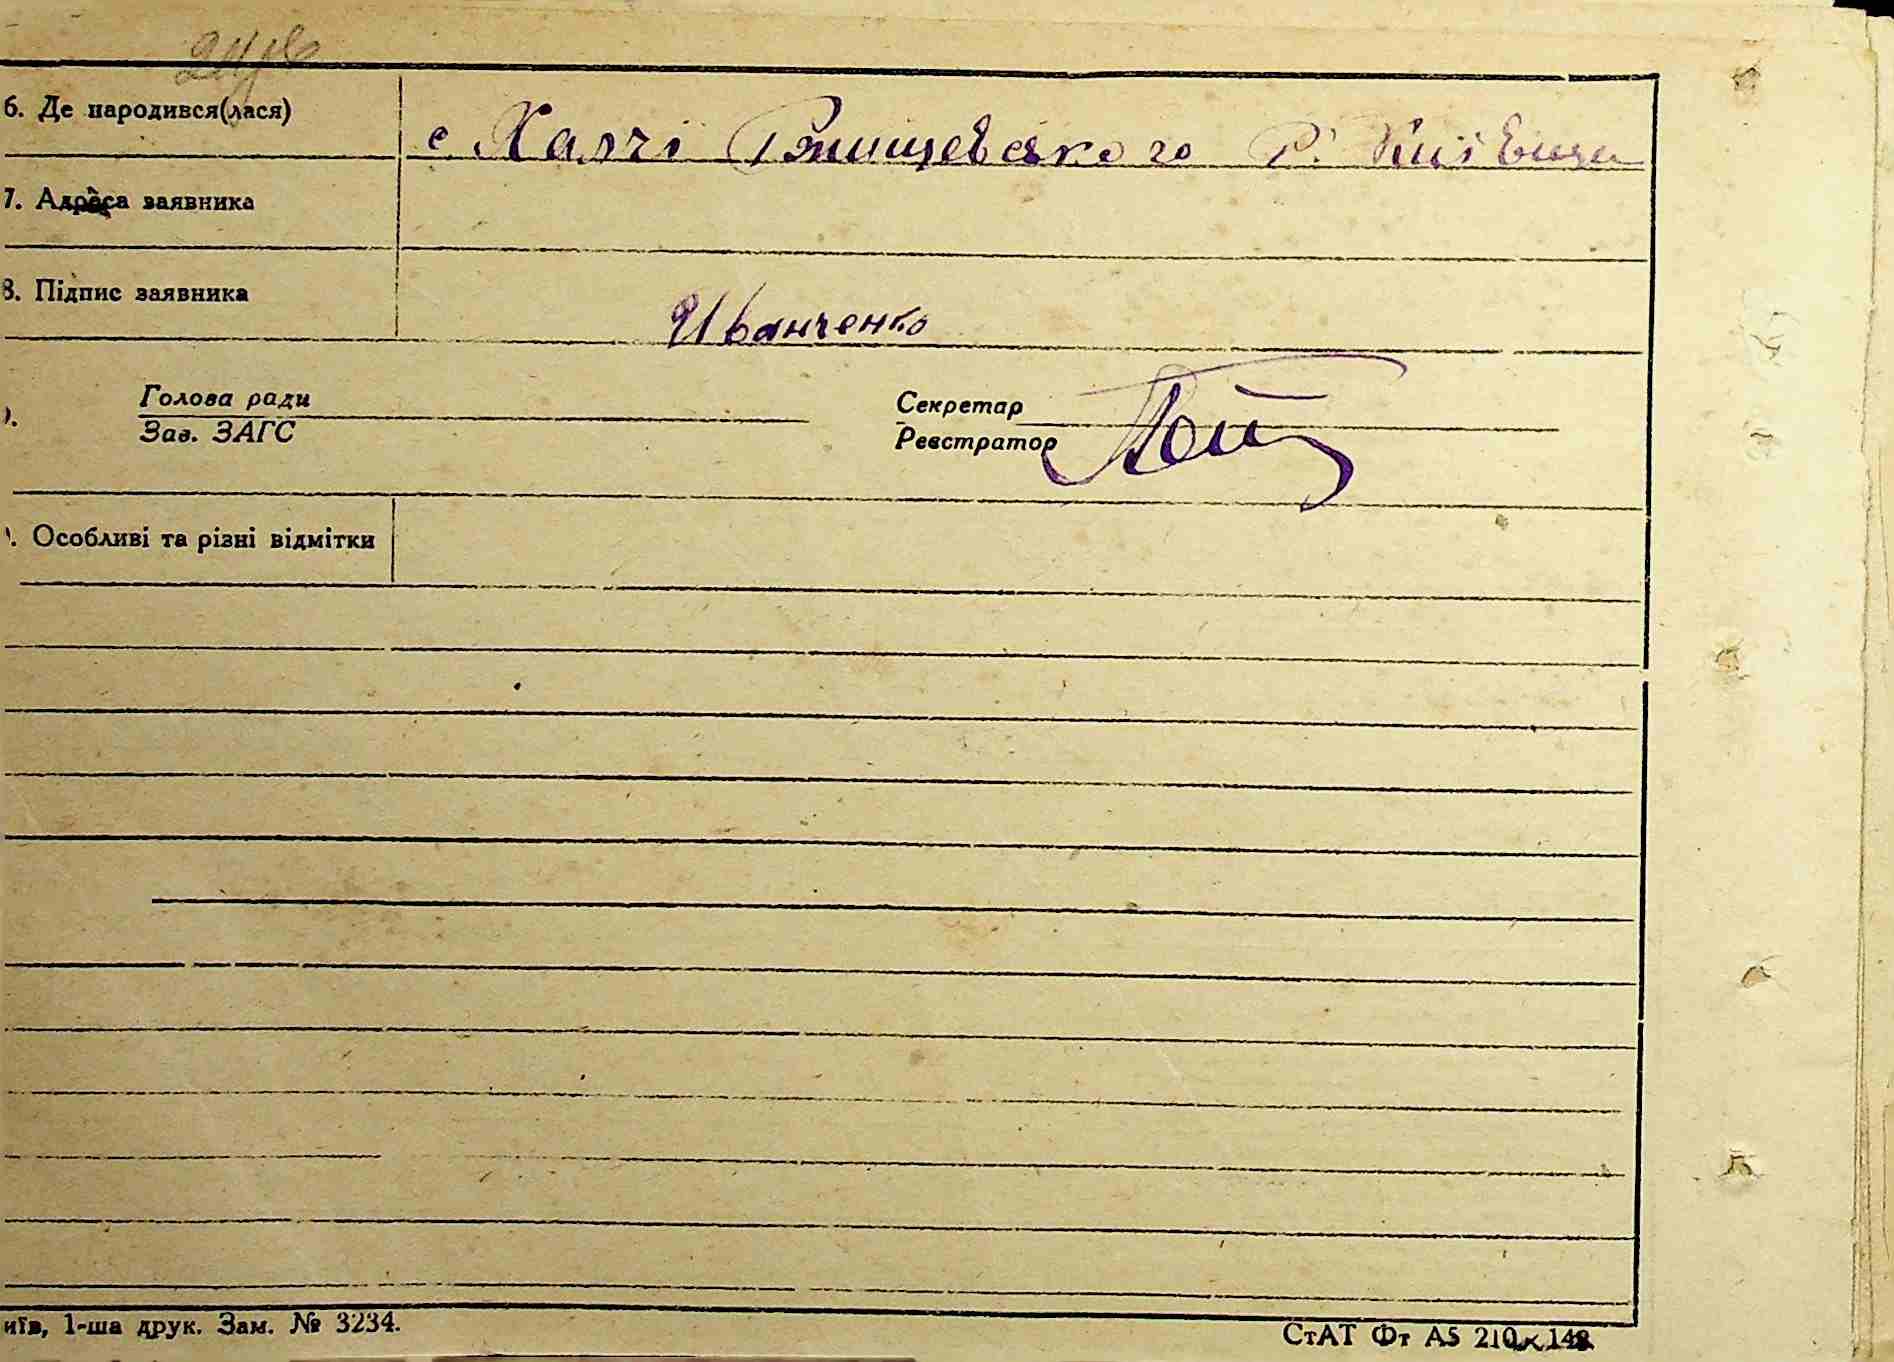 6. Де народився(лася)
с Халчі Ржищевського Р. Київщи
7. Адреса заявника
8. Підпис заявника
Иванченко
Голова ради
Зав. ЗАГС
Секретар
Реєстратор
. Особливі та різні відмітки
иїв, 1-ша друк. Зам. № 3234.
СтАТ Фт А5 210×148